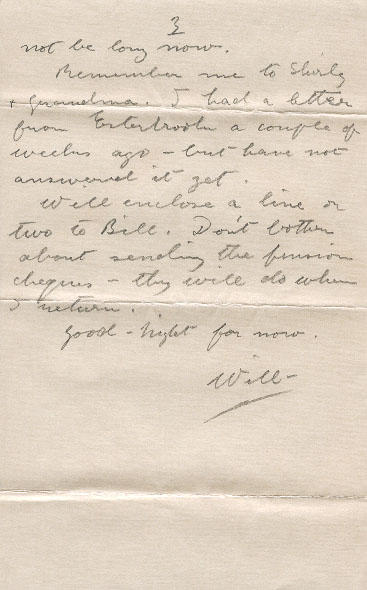 3
not be long now.
Remember me to Shirly
+ Grandma. I had a letter
from Esterbrooks a couple of
weeks ago - but have not
answered it yet.
Will enclose a line or
two to Bill. Don't bother
about sending the pension
cheques - they will do when
I return.
Good-night for now.
Will-